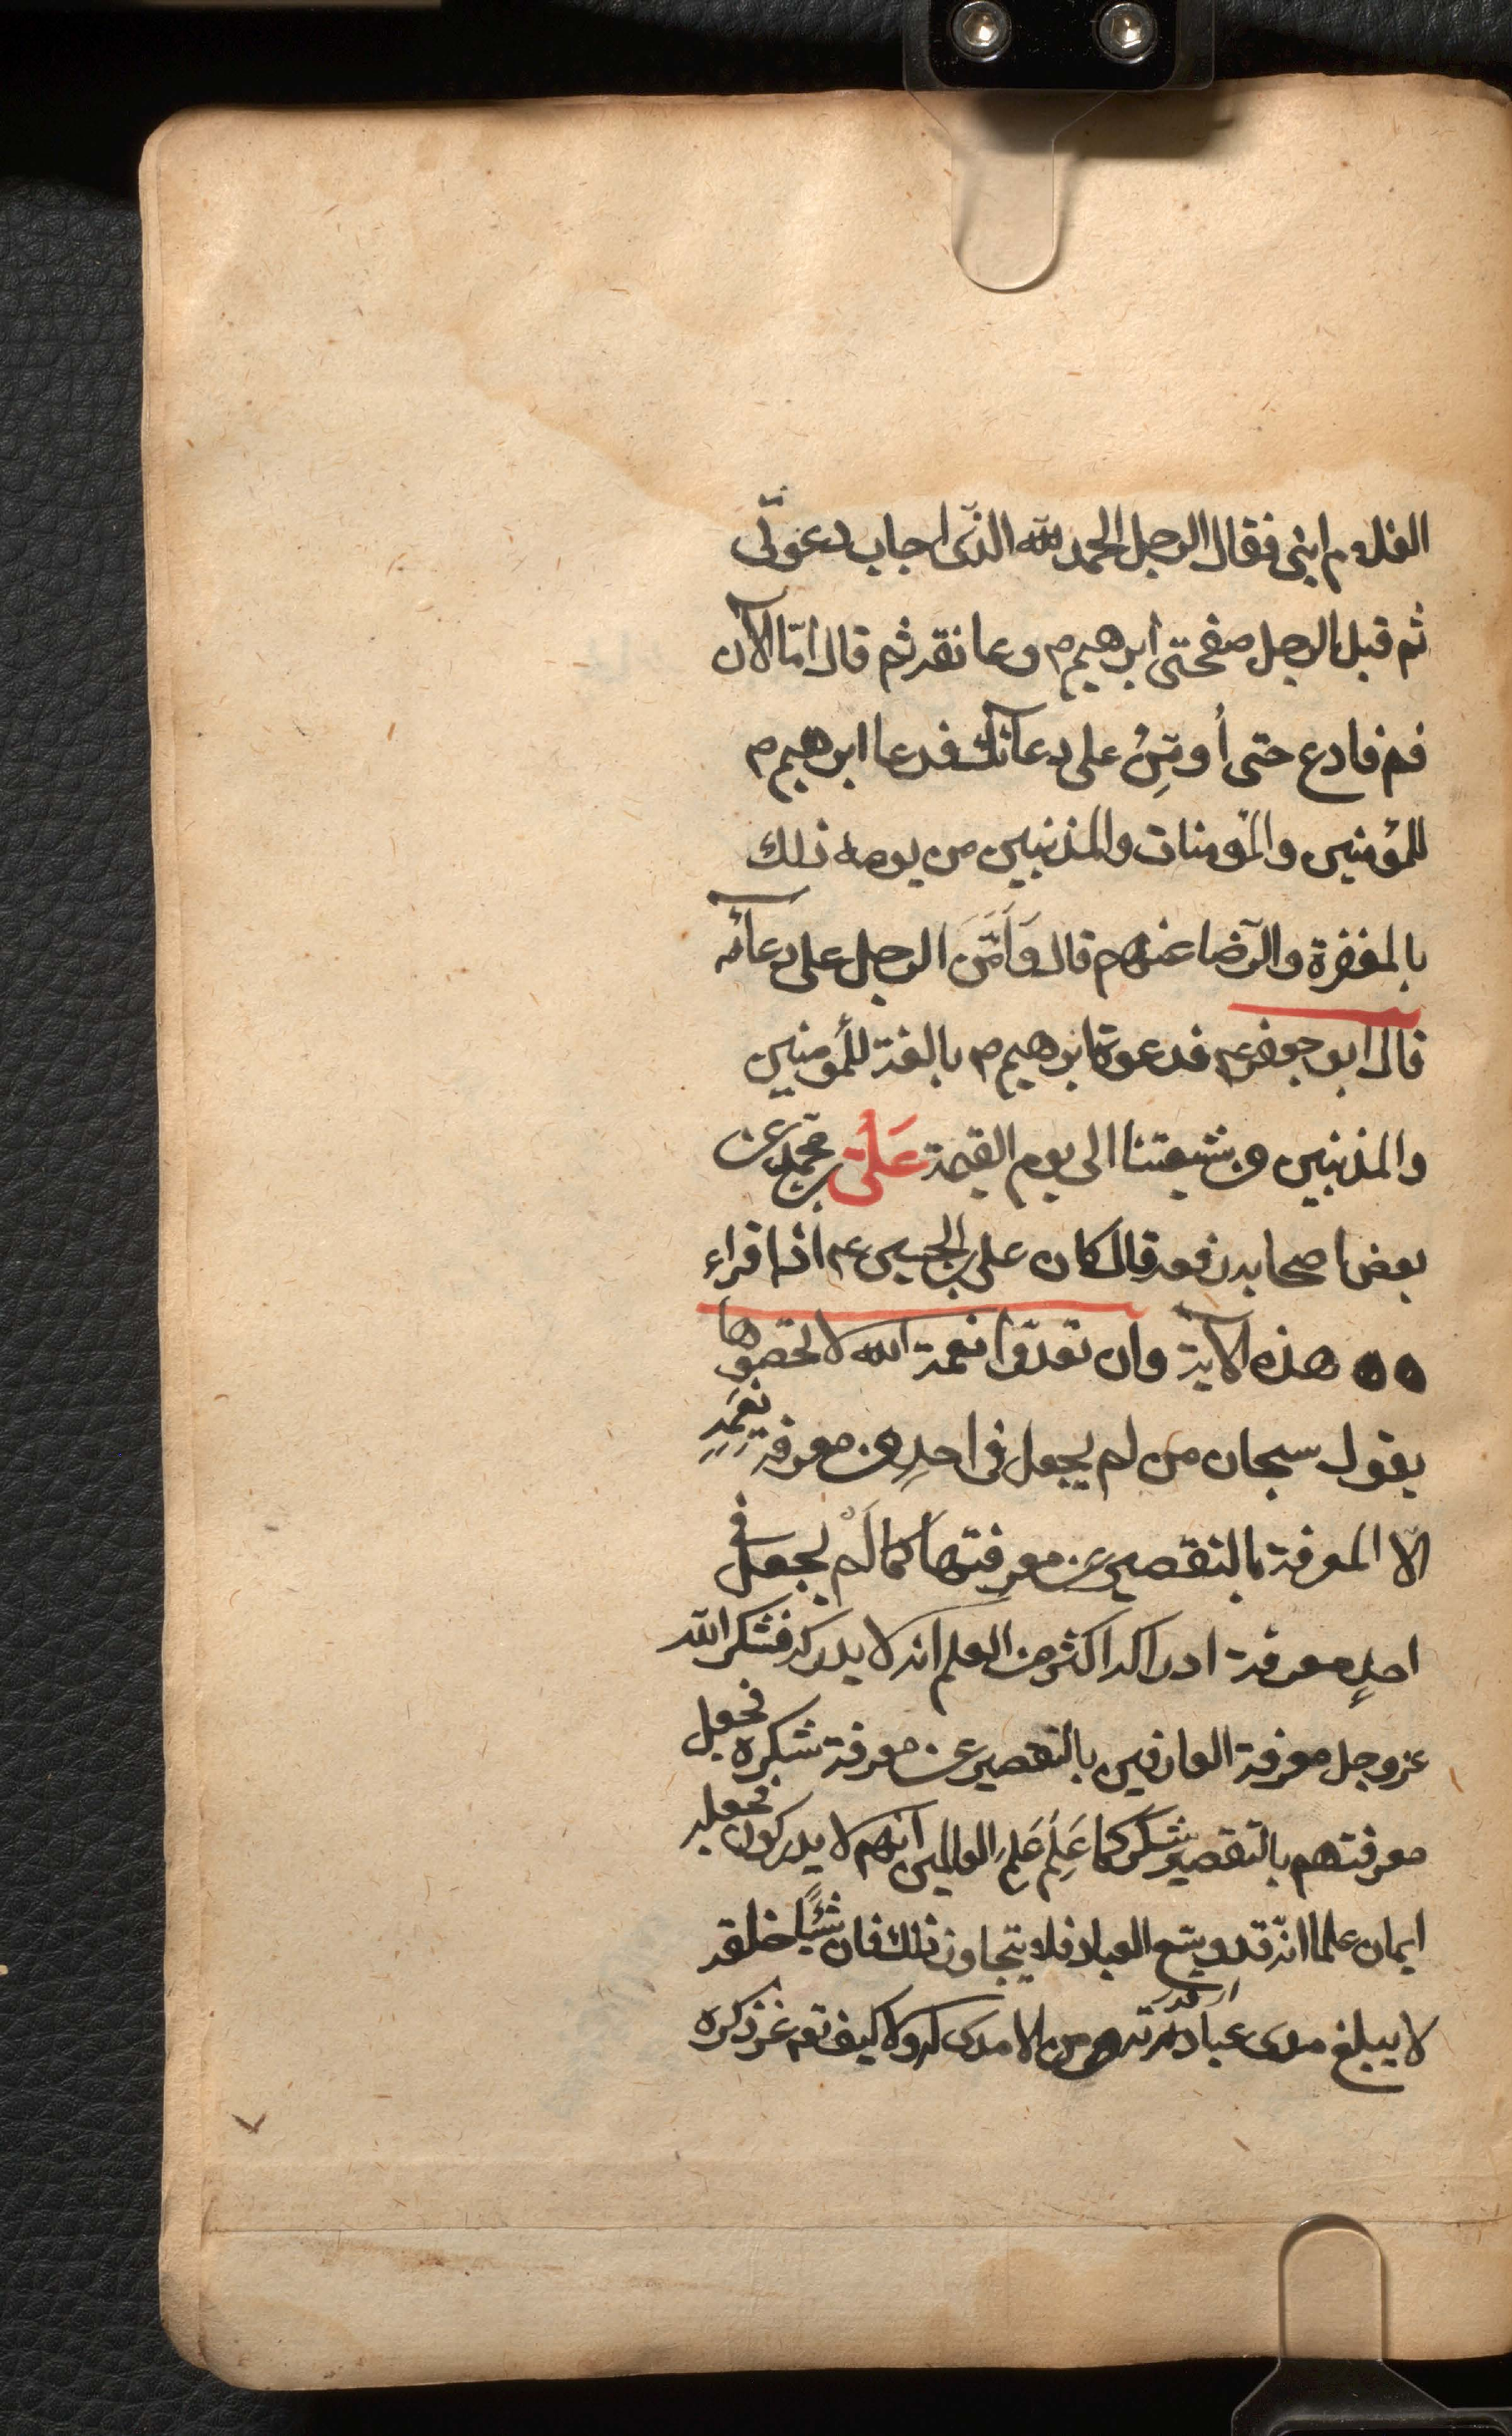 الغلام ابنى فقال الرجل الحمد لله الذى اجاب دعوتى
ثم قبل الرجل صفحتى ابرهيم م وعانقه ثم قال امّا الآن
فقم فادع حتى أُومِّنُ على دعآئك فدعا ابرهيم م
للمؤمنين والمؤمنات والمذنبين من يومه ذلك
بالمغفرة والرّضا عنهم قال وَاَمَّنَ الرجل على دعآئه
قال ابو جعفر عم فدعوة ابرهيم م بالغة للمؤمنين
والمذنبين من شيعتنا الى يوم القيمة عَلىّ بن محمد عن
بعض اصحابه رفعه قال كان على بن الحسين عم اذا قراء
هذه الآية وان تعدّوا نعمة الله لا تحصوها
يقول سبحان من لم يجعل فى احدٍ من معرفة نِعَمِهِ
الّا المعرفة بالتقصير عن معرفتها كما لَمْ يجعل فى
احدٍ معرفة ادراكه اكثر من العلم انه لا يدركه فشكر الله
عز وجل معرفة العارفين بالتقصير عن معرفة شكره فجعل
معرفتهم بالتقصير شكرا كما عَلِمَ عَلِمَ العالمين انهم لا يدركونه فجعله
ايمان علما انّه قد وسع العباد فلا يتجاوز ذلك فان شيئًا من خلقه
لا يبلغ مدى عبادته من لا مدى له ولا كيف تعم عز ذكره